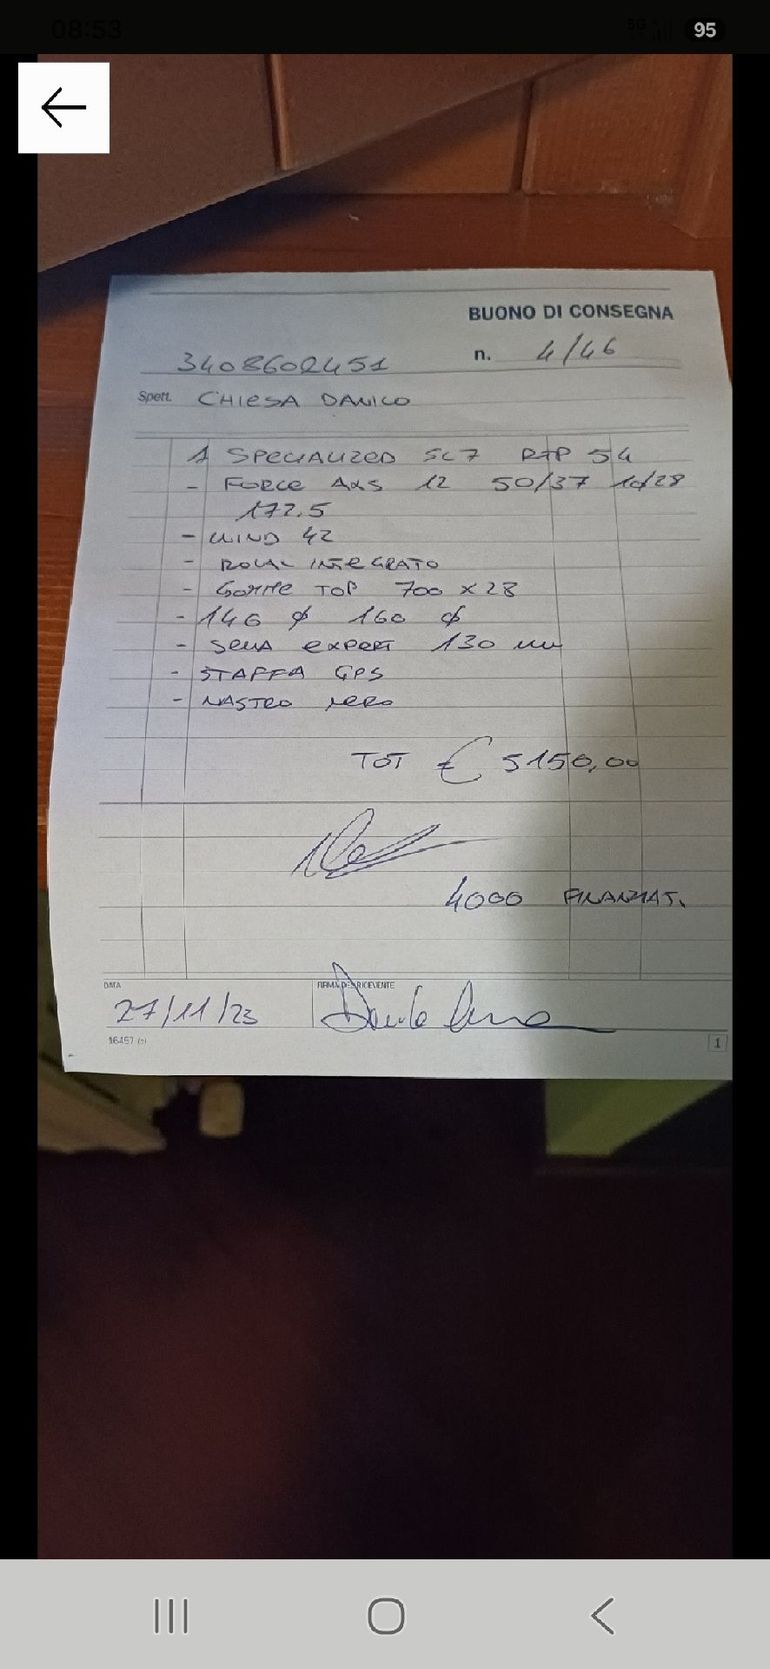 08:53
5G
95
BUONO DI CONSEGNA
3408602451
n. 4/46
Spett. CHIESA DANILO
1 SPECIALIZED SL7 RTP 54
- FORCE AXS 12 50/37 10/28
172.5
- WIND 42
- ROVAL INTEGRATO
- GOMME TOP 700 x 28
- 146 ∅ 160 ∅
- SELLA EXPERT 130 mm
- STAFFA GPS
- NASTRO NERO
TOT € 5150,00
4000 FINANZIAT.
DATA
FIRMA DEL RICEVENTE
27/11/23
16457
1